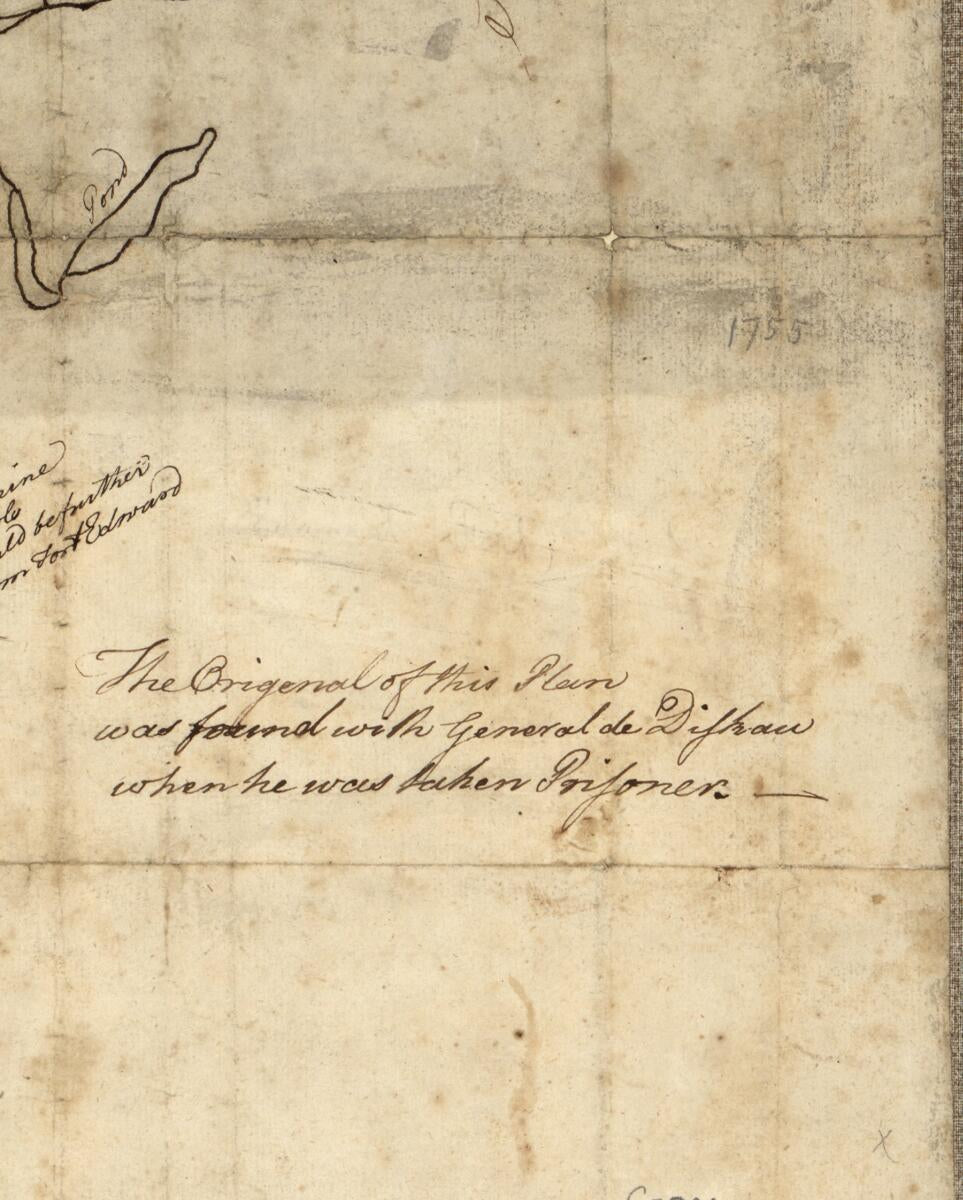 Pond
1755
be further
Fort Edward
The Origenal of this Plan
was found with General de Diſkau
when he was taken Priſoner. —
x